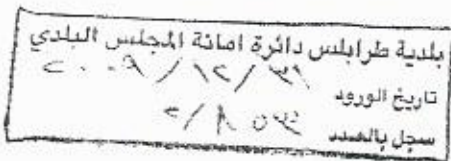 بلدية طرابلس دائرة امانة المجلس البلدي
تاريخ الورود ٢٠٠٩/١٢/٣١
سجل بالعدد